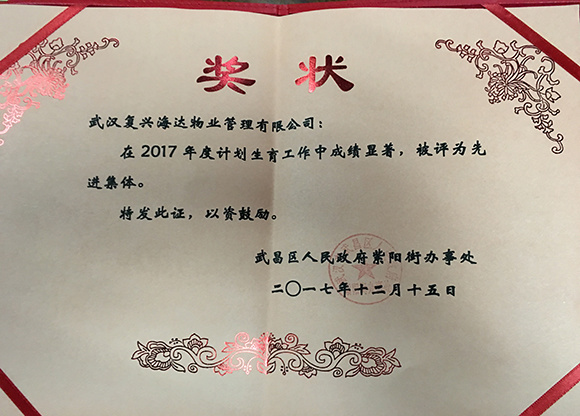 奖状
武汉复兴海达物业管理有限公司：
在2017年度计划生育工作中成绩显著，被评为先
进集体。
特发此证，以资鼓励。
武昌区人民政府紫阳街办事处
二〇一七年十二月十五日